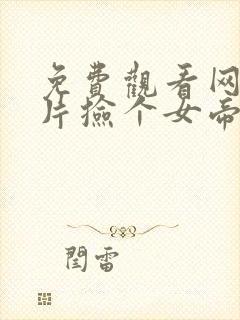 免費觀看网
片撿个女帝
閆雷